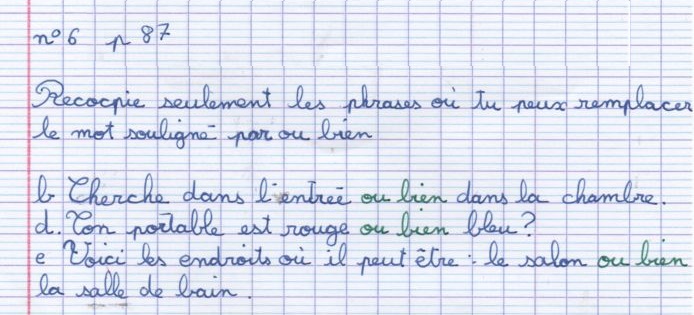 n° 6 p 87
Recocpie seulement les phrases où tu peux remplacer
le mot souligné par ou bien
b Cherche dans l'entreé ou bien dans la chambre.
d. Ton portable est rouge ou bien bleu ?
e Voici les endroits où il peut être : le salon ou bien
la salle de bain.